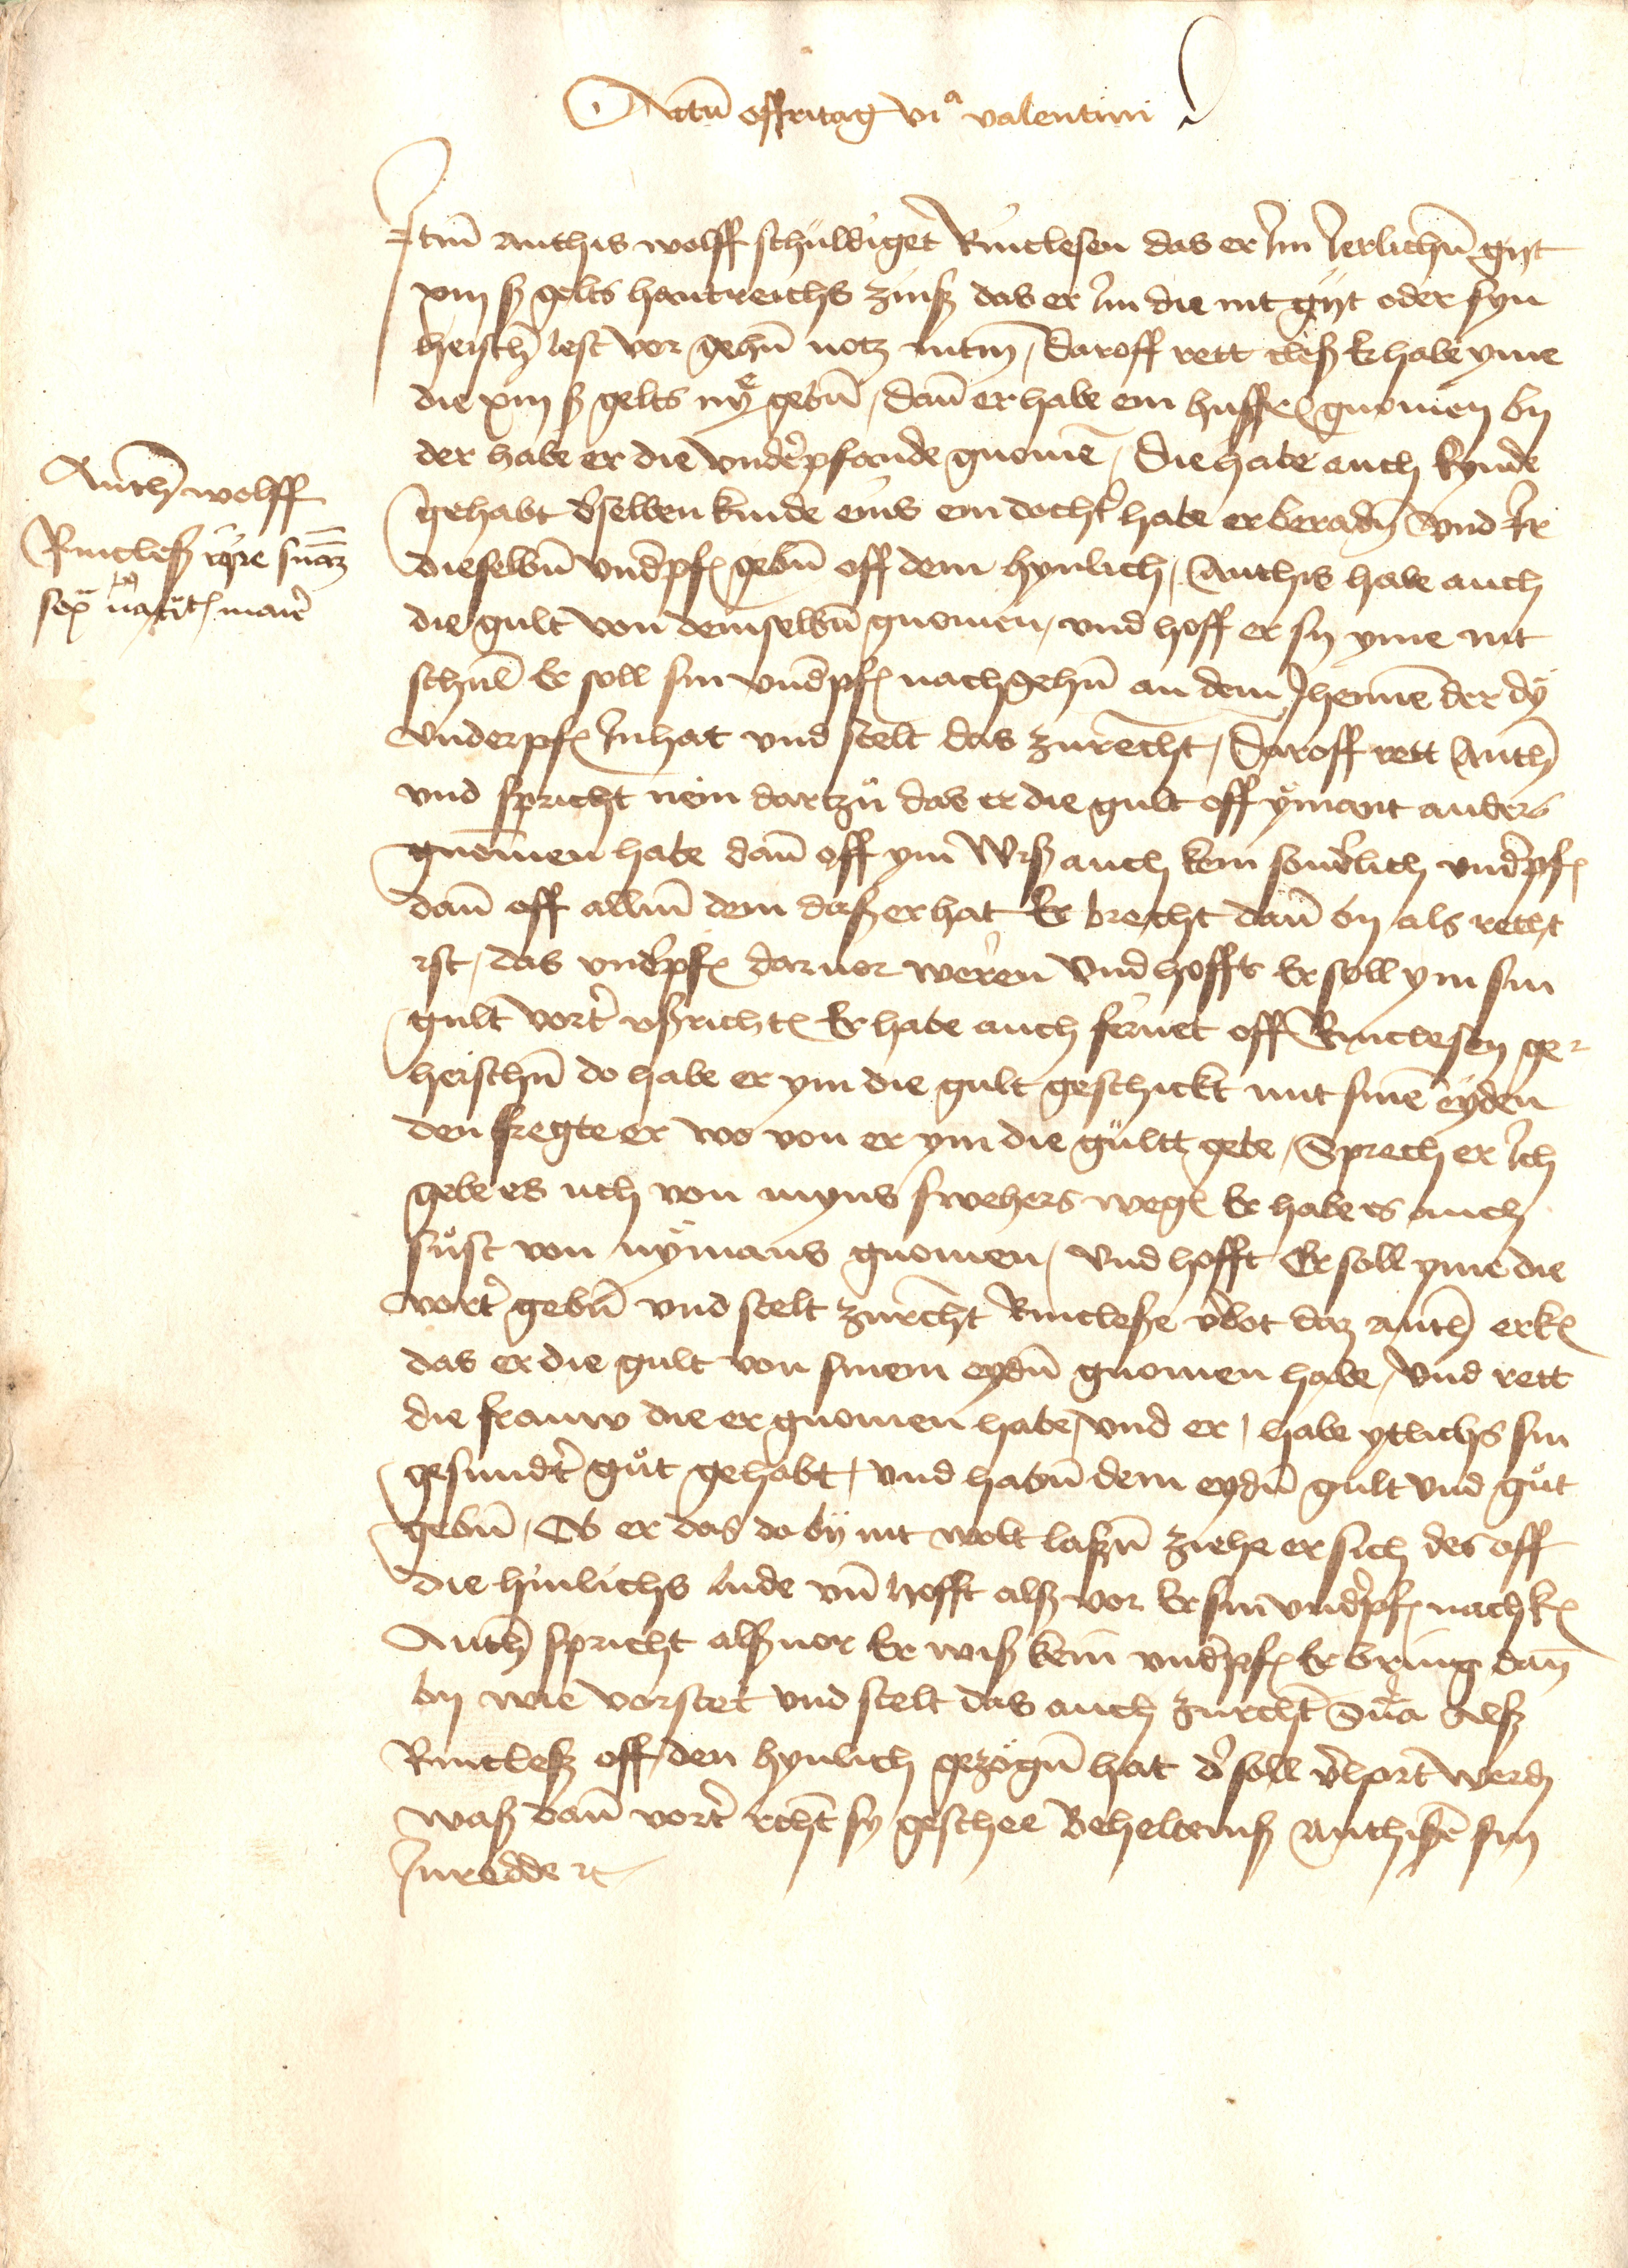 Actu(m) off fritag vi(gili)a valentini
It(e)m anthis wolff schuldiget Rinclesen das er Im Ierlich(e)n gijt
xiiij ß gelts hantreichs zinß das er Im die nit gijt oder syn
heisch(en) lest vor geh(e)n notz int(eri)m / daroff rett cleß Er habe yme
die xiiij ß gelts nye geb(e)n / dan(n) er habe ein husffr(auwe) gnomen by
der habe er die und(er)pfande gnome(n) / Die habe auch kynde
gehabt d(er)selben kinde eins ein docht(er) habe er berad(e)n und Ir
dieselb(e)n und(er)pf(ande) geb(e)n off dem hynlich / Anthis habe auch
die gult von demselb(e)n gnomen / und hoff er sy yme nit
schul(dig) Er soll sin und(er)pf(ande) nachgeh(e)n an dem Jhenne(n) der dy
underpf(ande) Inhat und stelt das zurecht / Daroff rett Anth(is)
und spricht nein dartzu das er die gult off ymant anders
gnomen habe dan(n) off ym Wiß auch kein sond(er)lich und(er)pf(ande)
dan(n) off all(e)m dem daß er hat Er brecht dan(n) by als recht
ist / das und(er)pf(ande) darvor weren Und hofft Er soll ym sin
gult vort(er) ußricht(en) Er habe auch fernet off Rinclesen ge-
heisch(e)n do habe er ym die gult geschickt mit sine(m) eyden
den fregte er wo von er ym die gultt gebe / Sprech er Ich
gebe es uch von myns swehers weg(en) Er habe es auch
sust von nymans gnomen / Und hofft Er soll yme die
vort(er) geb(e)n und stelt zurecht Rincleße v(er)bot daz anth(is) erk(ennt)
das er die gult von sinem eyd(e)n gnomen habe / Und rett
die frauw die er gnomen habe / und er / habe ytlichs sin
gesund(er)t gut gehabt / und hab(e)n dem eyd(e)n gult und gut
geb(e)n / Ob er das do by nit wolt laß(e)n ziehe er sich des off
die hinlichs lude un(d) hofft alß vor Er sin und(er)pf(ande) nach k(ommen)
Anth(is) spricht alß vor Er wiß kein und(er)pf(ande) Er bring dan(n)
by wie vorstet und stelt das auch zurecht S(ente)n(ti)a Alß
Rincleß off den hynlich gezog(e)n hat d(er) soll v(er)hort werd(en)
waß dan(n) vort(er) recht sy geschee Beheltniß anthise(n) sin
Inredde etc
Anth(is) wolff
Rincleß